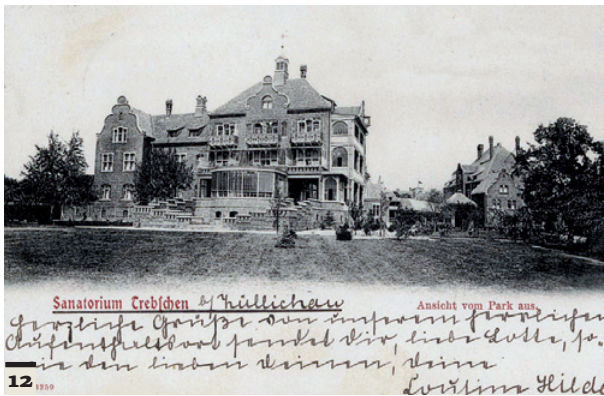 Sanatorium Trebschen b/ Züllichau
Ansicht vom Park aus.
Herzliche Grüße von unserem herrlichen
Aufenthaltsort sendet Dir, liebe Lotte, so-
wie den lieben Deinen, Deine
12
1250
Cousine Hilde